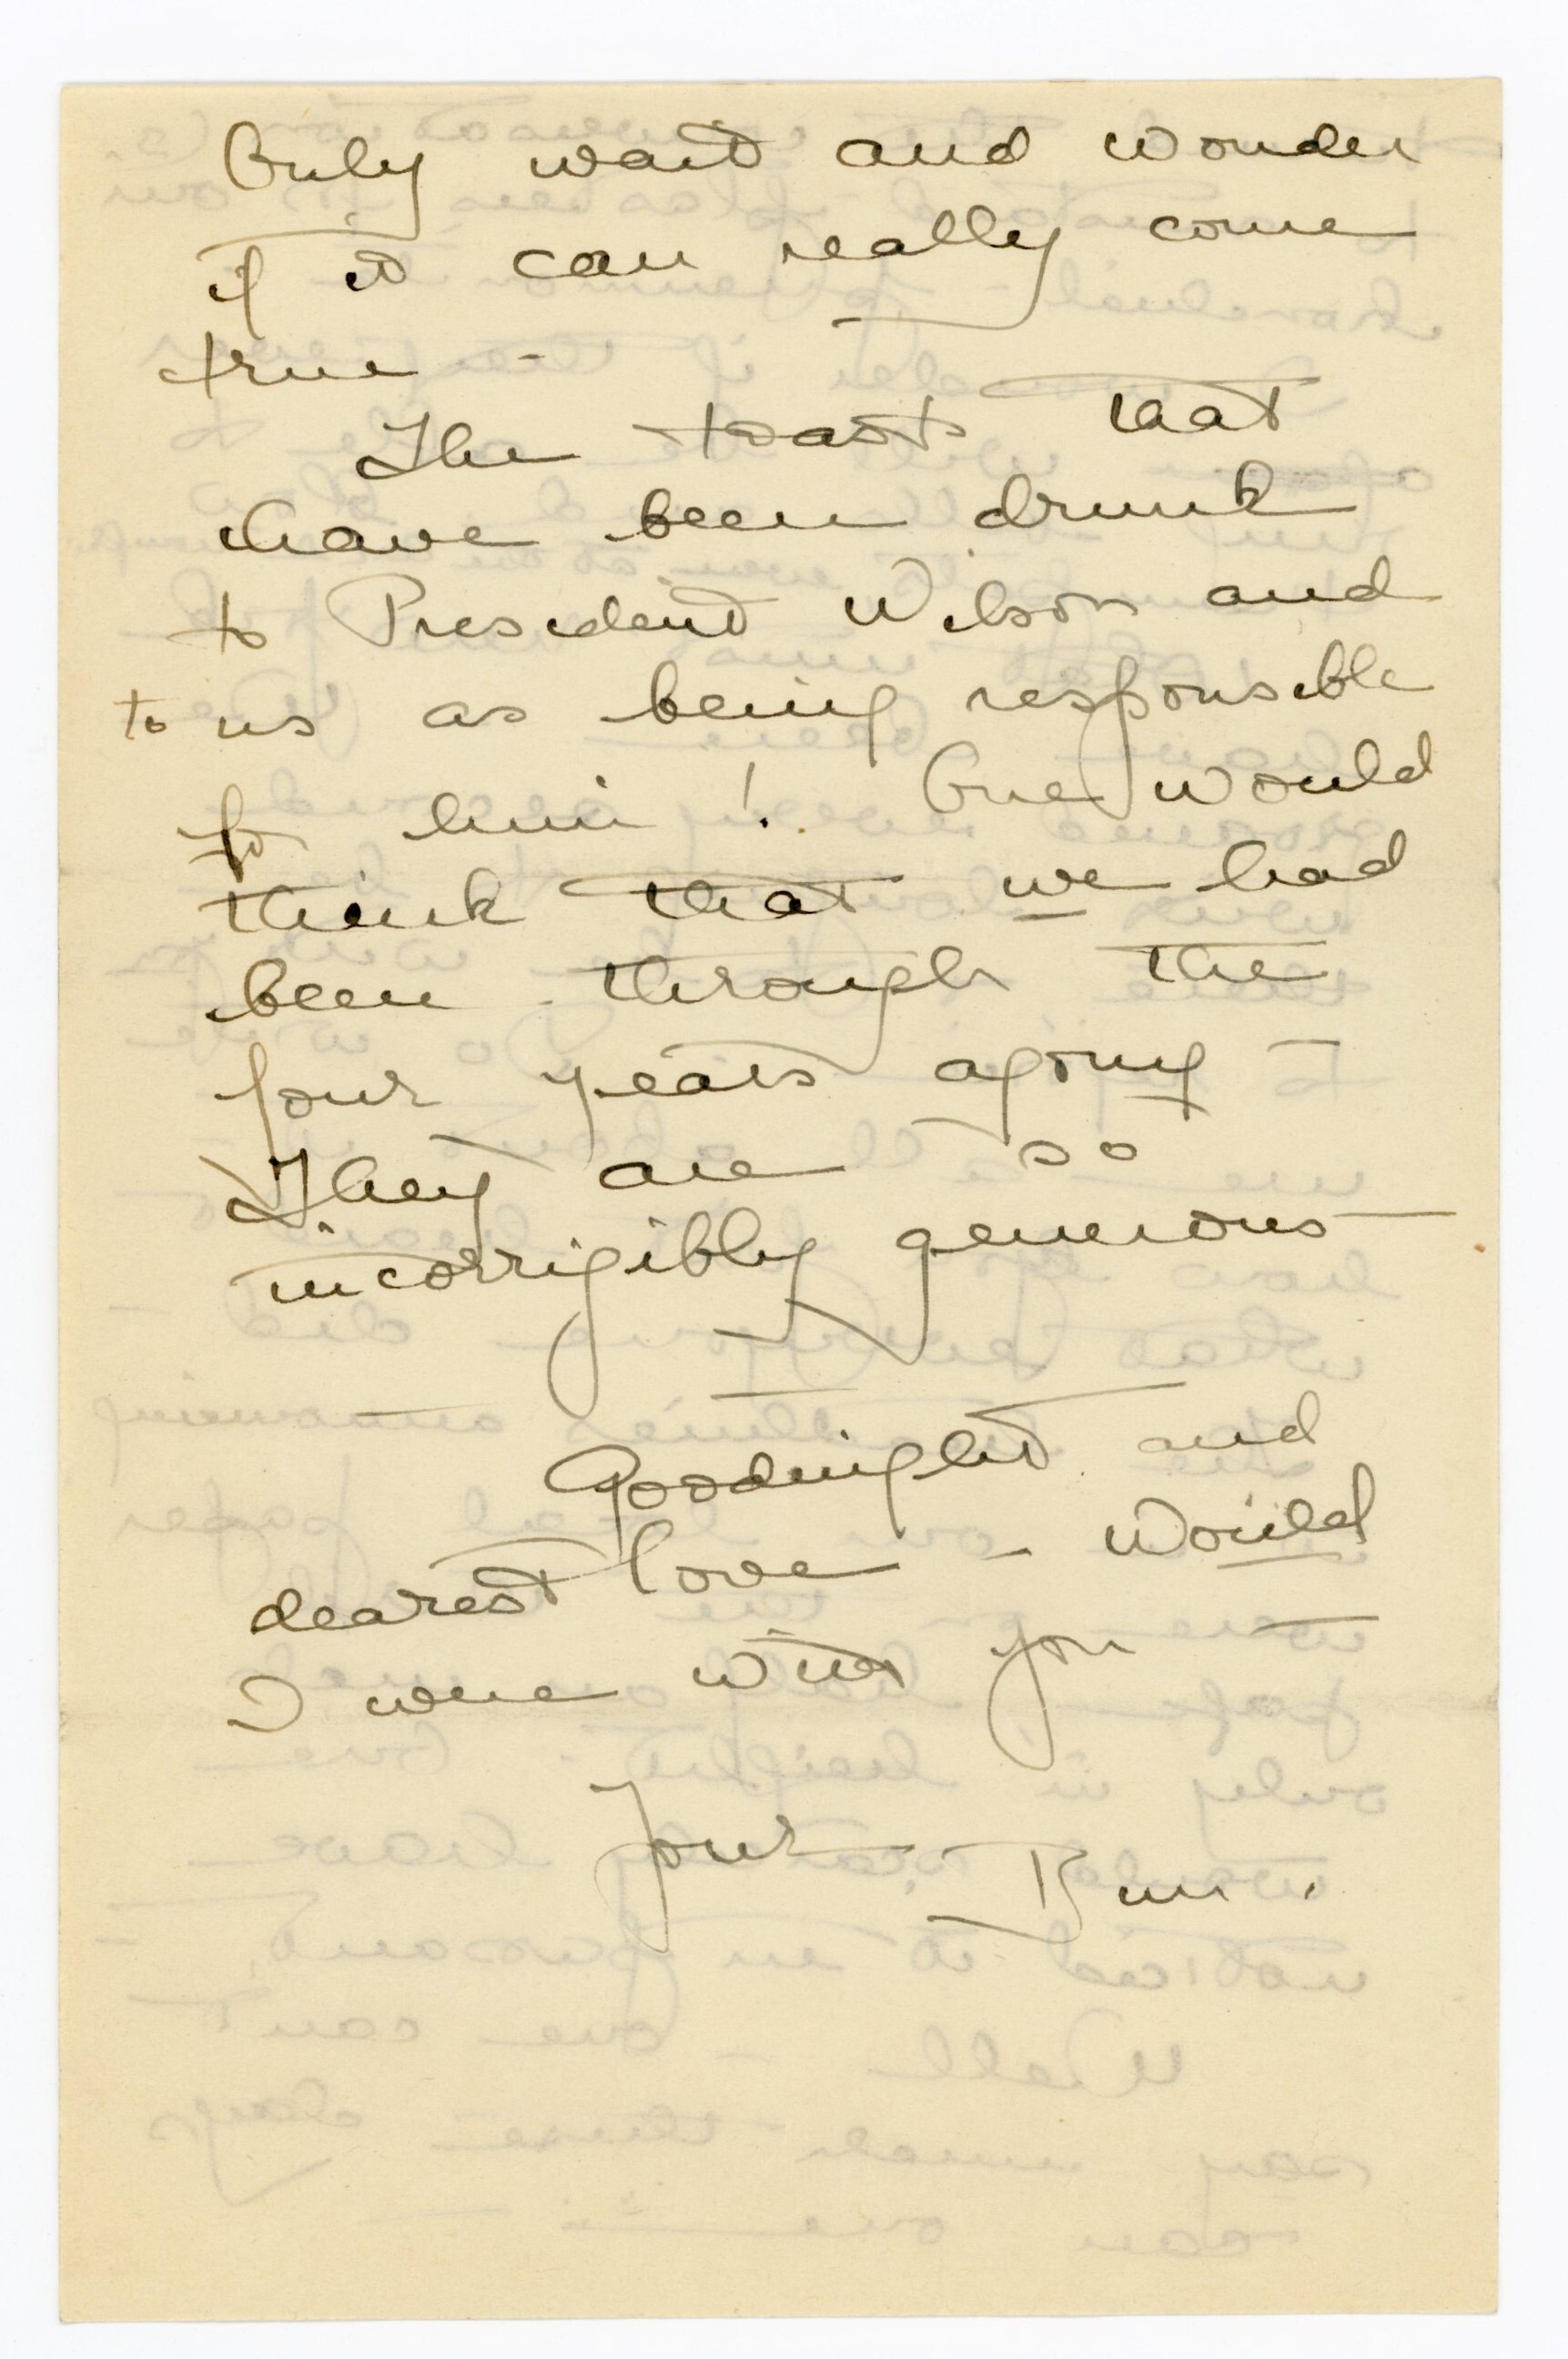 Only wait and wonder
if it can really come
true -
The toasts that
have been drunk
to President Wilson and
to us as being responsible
for him! One would
think that we had
been through the
four years agony -
They are so
incorrigibly generous -
Goodnight and
dearest love - Would
I were with you -
Your